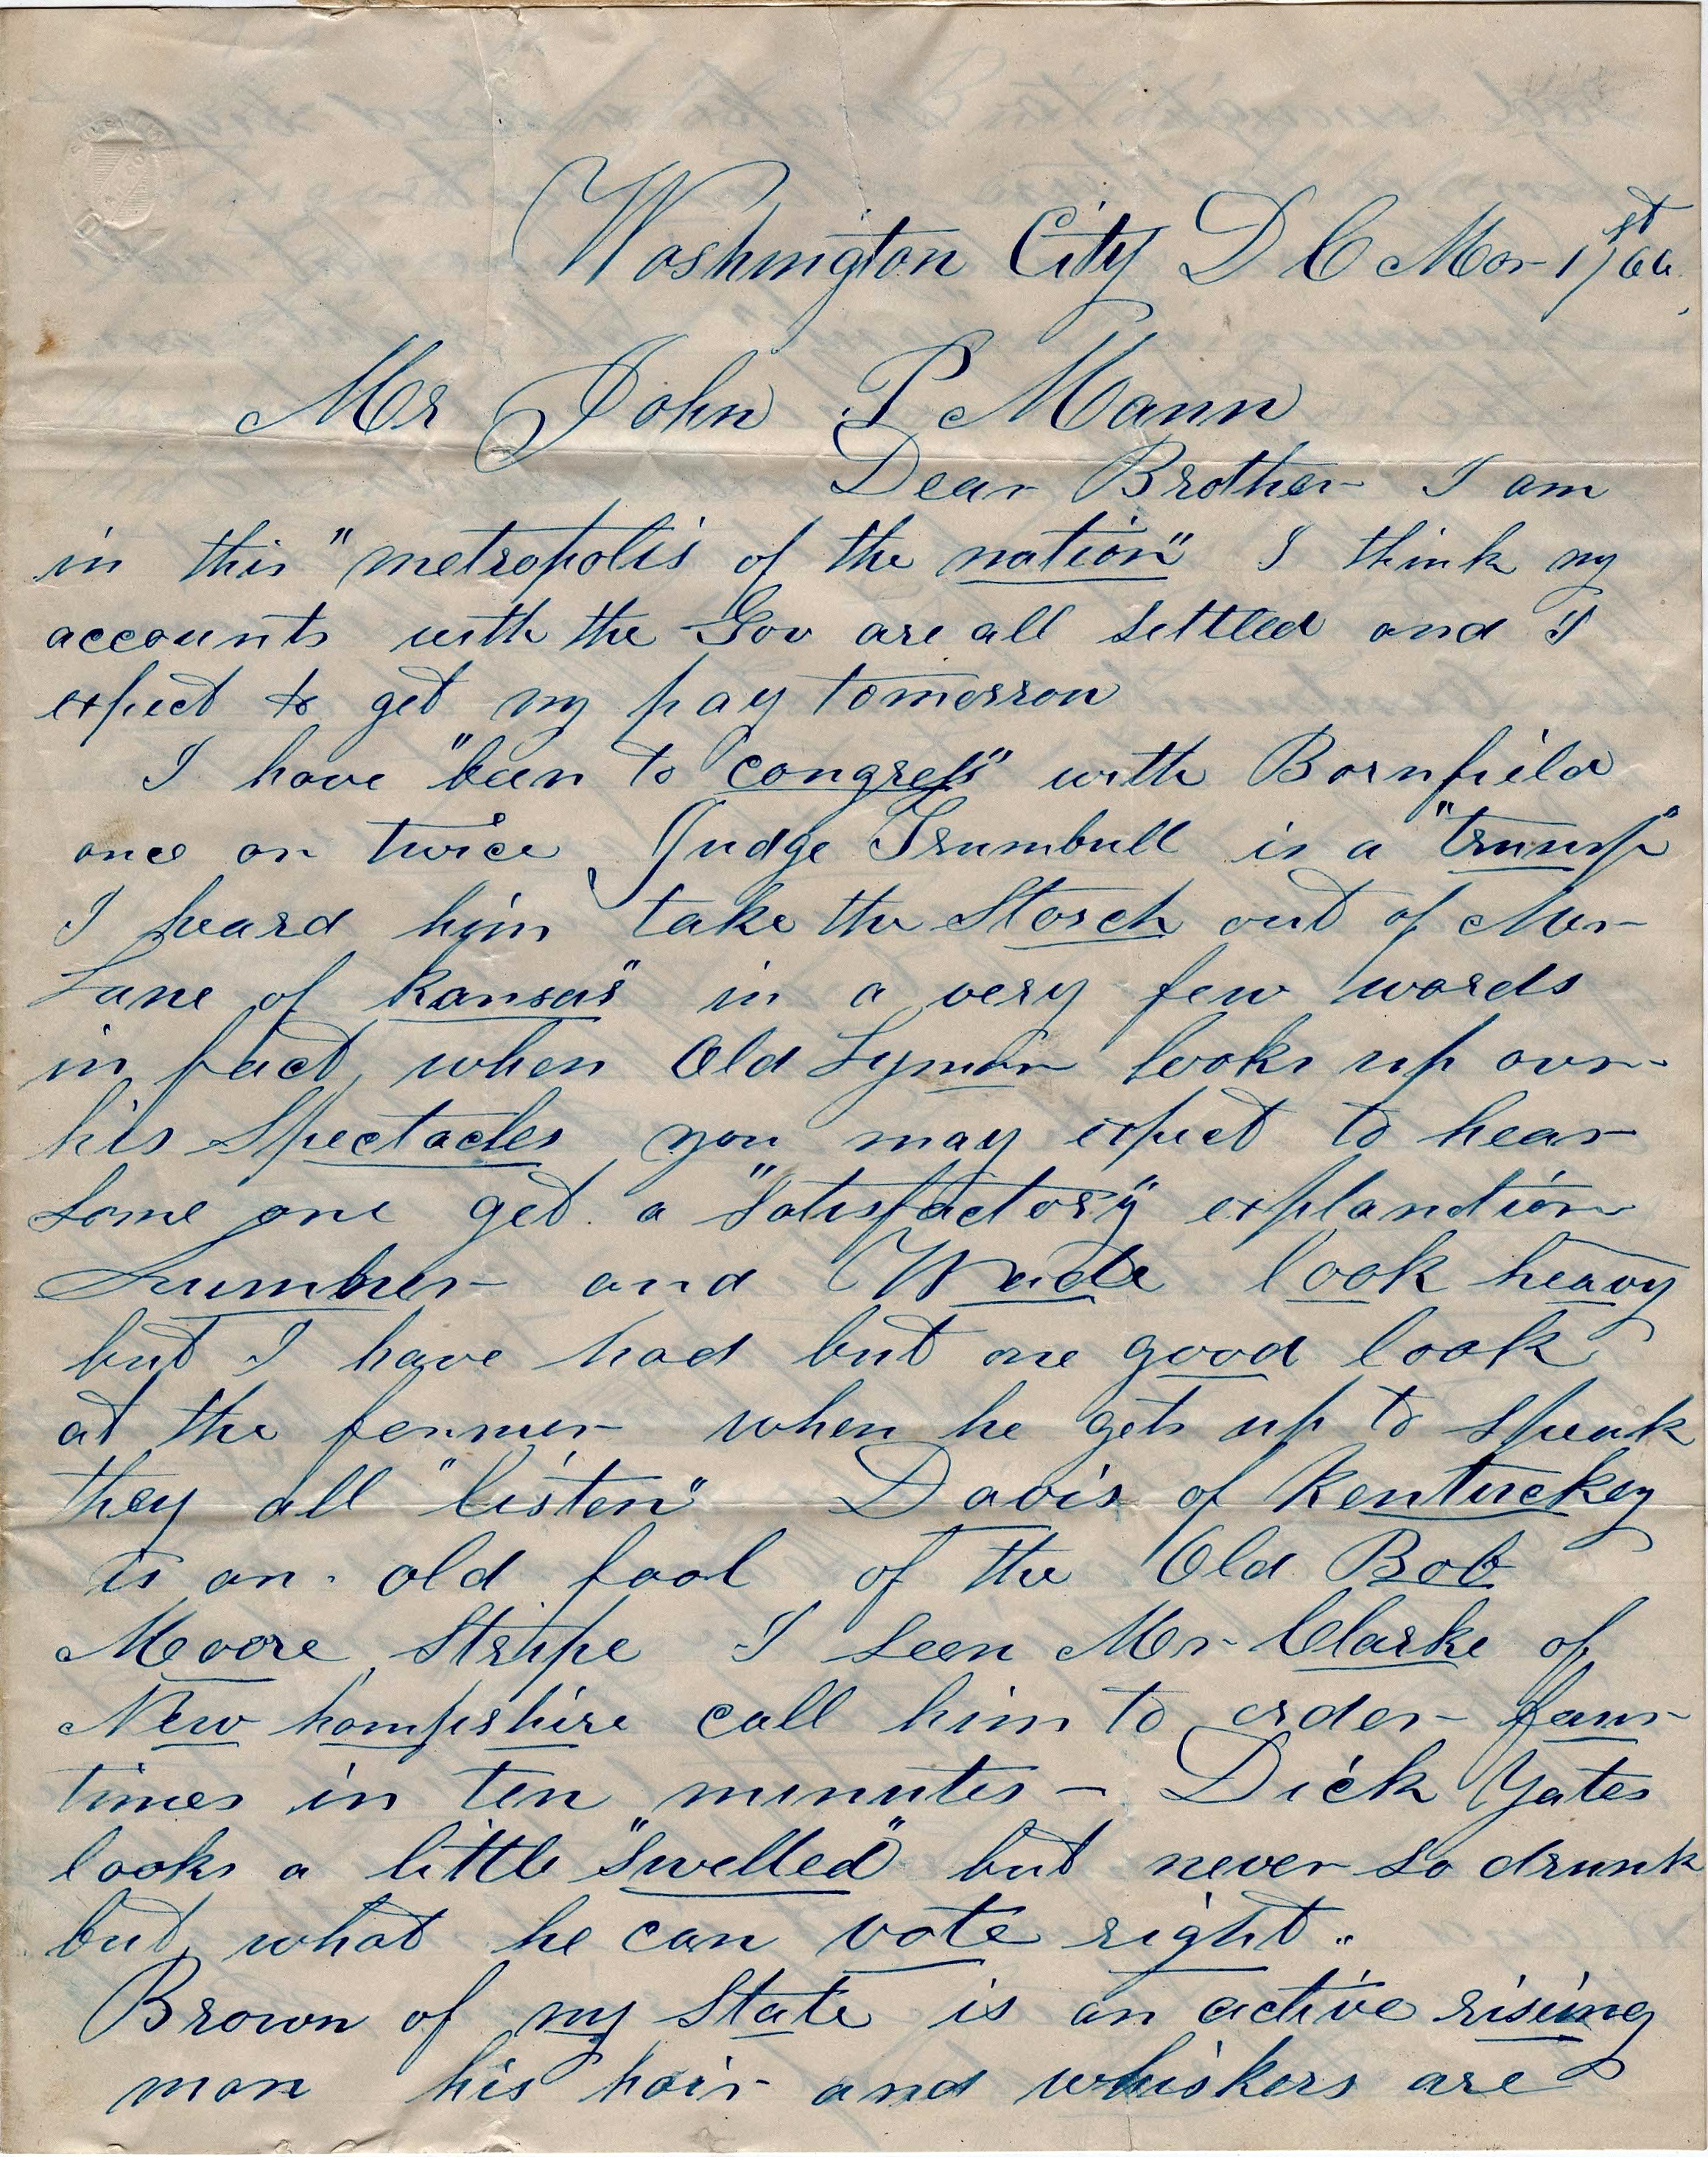 Washington City D C Mar 1st/66.
Mr John P Mann
Dear Brother I am
in this "metropolis of the nation" I think my
accounts with the Gov are all settled and I
expect to get my pay tomorrow
I have "been to congress" with Barnfield
once or twice Judge Trumbull is a "trump"
I heard him take the Storch out of Mr
Lane of Kansas" in a very few words
in fact, when Old Lyman looks up over
his Spectacles you may expect to hear
some one get a "satisfactory" explanation
Sumner and Wade look heavy
but I have had but one good look
at the former when he gets up to speak
they all "listen" Davis of Kentuckey
is an old fool of the Old Bob
Moore Stripe I seen Mr Clarke of
New hampshire call him to order four
times in ten minutes - Dick Yates
looks a little "swelled" but never so drunk
but what he can vote right "
Brown of my State is an active rising
man his hair and whiskers are